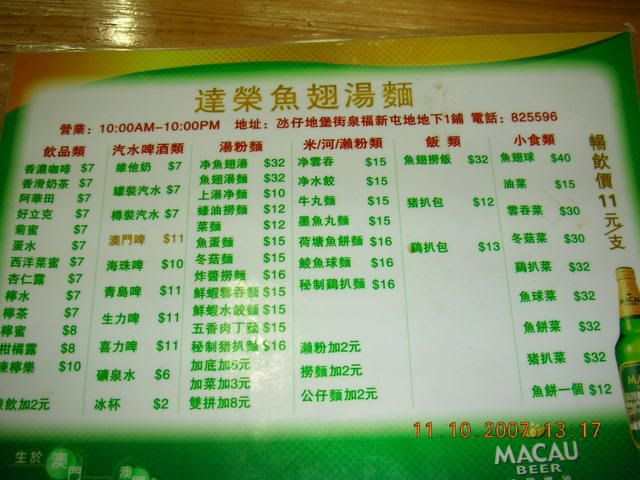 達榮魚翅湯麵
營業：10:00AM–10:00PM 地址：氹仔地堡街泉福新屯地地下1鋪 電話：825596
飲品類
香濃咖啡 $7
香滑奶茶 $7
阿華田 $7
好立克 $7
菊蜜 $7
蛋水 $7
西洋菜蜜 $7
杏仁露 $7
檸水 $7
檸茶 $7
檸蜜 $8
柑橘露 $8
凍檸樂 $10
飲加2元
汽水啤酒類
維他奶 $7
罐裝汽水 $7
樽裝汽水 $7
澳門啤 $11
海珠啤 $10
青島啤 $11
生力啤 $11
喜力啤 $11
礦泉水 $6
冰杯 $2
湯粉麵
净魚翅湯 $32
魚翅湯麵 $32
上湯净麵 $10
蠔油撈麵 $12
菜麵 $12
魚蛋麵 $15
冬菇麵 $15
炸醬撈麵 $16
鮮蝦雲吞麵 $15
鮮蝦水餃麵 $15
五香肉丁麵 $15
秘制豬扒麵 $16
加底加5元
加菜加3元
雙拼加8元
米/河/瀨粉類
净雲吞 $15
净水餃 $15
牛丸麵 $15
墨魚丸麵 $15
荷塘魚餅麵 $16
鯪魚球麵 $16
秘制鷄扒麵 $16
瀨粉加2元
撈麵加2元
公仔麵加2元
飯類
魚翅撈飯 $32
豬扒包 $12
鷄扒包 $13
小食類
魚翅球 $40
油菜 $15
雲吞菜 $30
冬菇菜 $30
鷄扒菜 $32
魚球菜 $32
魚餅菜 $32
豬扒菜 $32
魚餅一個 $12
暢飲價11元/支
MACAU
11.10.2007 13:17
MACAU
BEER
生於澳門